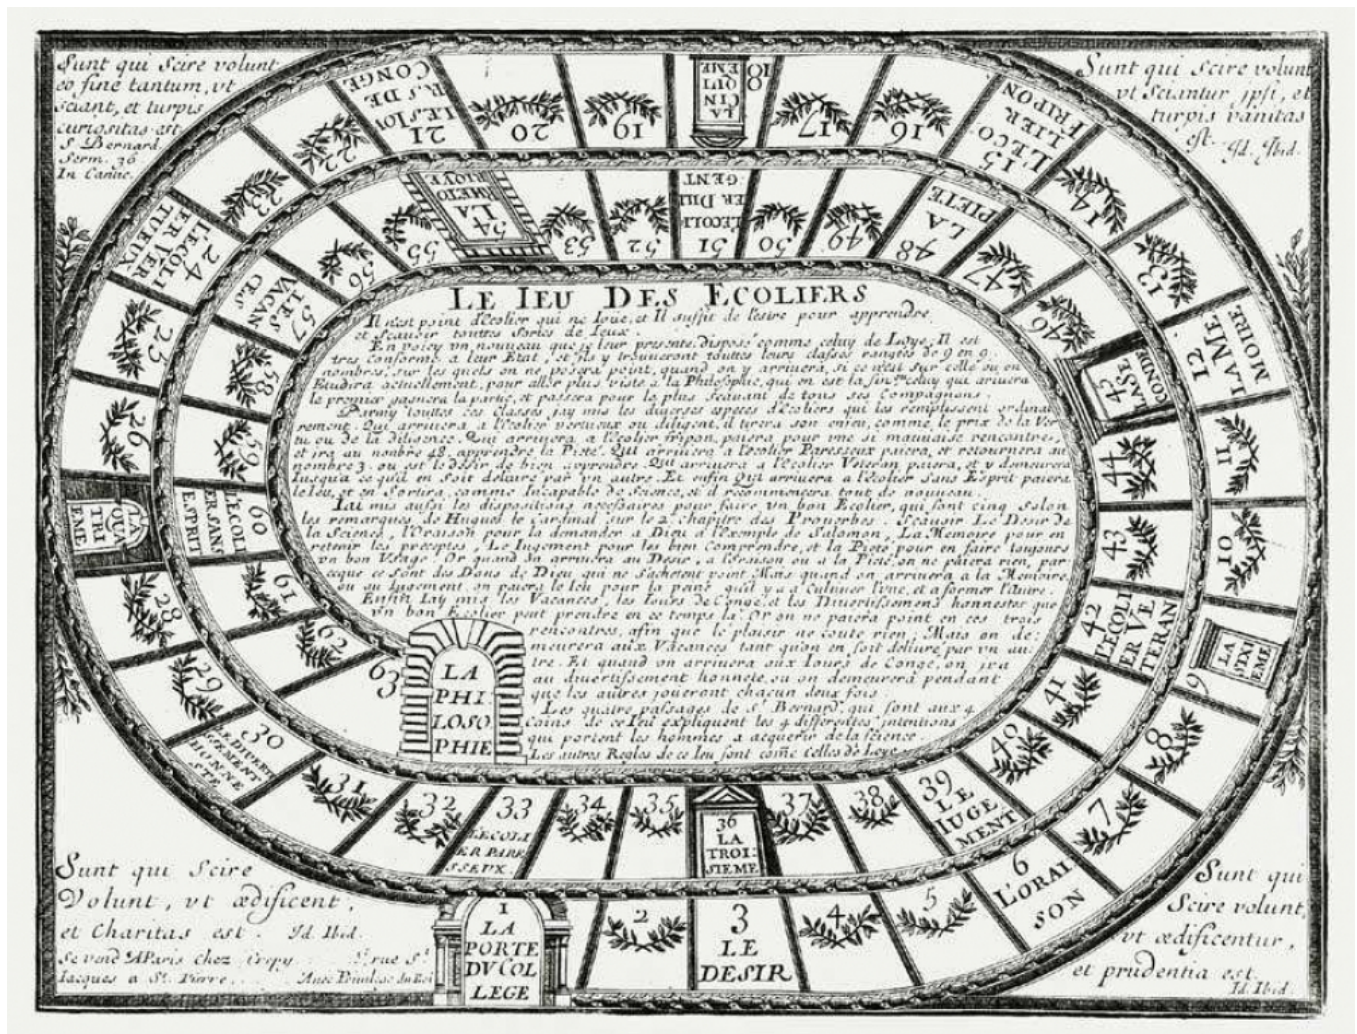 Sunt qui Scire volunt
eo fine tantum, vt
sciant, et turpis
curiositas est
S. Bernard.
Serm. 36
In Cantic.
Sunt qui Scire volunt
vt Sciantur ipsi, et
turpis vanitas
est. Id. Ibid.
LE IEU DES ECOLIERS
Il n'est point d'Ecolier qui ne Ioue, et Il suffit de l'estre pour apprendre
et Scauoir touttes sortes de Ieux.
En voicy vn nouveau que je leur presente, disposé comme celuy de Loye; Il est
tres conforme a leur Etat, et ils y trouueront touttes leurs classes rangées de 9 en 9
nombres, sur les quels on ne posera point, quand on y arriuera, si ce n'est sur celle ou on
Etudira actuellement, pour aller plus viste a la Philosophie, qui en est la fin, celuy qui ariuera
le premier gagnera la partie, et passera pour le plus Scauant de tous ses Compagnons.
Parmy touttes ces Classes jay mis les diuerses especes d'ecoliers qui les remplissent ordinai
rement. Qui arriuera a l'ecolier vertueux ou diligent, il tirera son enjeu, comme le prix de la Ver
tu ou de la diligence. Qui arriuera a l'ecolier fripon, paiera pour vne si mauuaise rencontre,
et ira au nonbre 48 apprendre la Pieté. Qui arriuera a l'ecolier Paresseux paiera, et retournera au
nombre 3. ou est le désir de bien apprendre. Qui arriuera a l'ecolier Veteran paiera, et y demeurera
Iusqu'a ce qu'il en Soit deliuré par vn autre. Et enfin Qui arriuera a l'ecolier sans Esprit paiera
le Ieu, et en Sortira, comme Incapable de Science, et il recommencera tout de nouueau.
I'ai mis aussi les dispositions necessaires pour faire vn bon Ecolier, qui sont cinq Selon
les remarques de Hugues le cardinal, sur le 2. chapitre des Prouerbes. Scauoir Le Desir de
la Science, l'Oraison pour la demander a Dieu a l'exemple de Salomon, La Memoire pour en
retenir les preceptes, Le Iugement pour les bien Comprendre, et la Pieté, pour en faire toujours
vn bon Vsage. Or quand on arriuera au Desir, a l'oraison ou a la Pieté, on ne paiera rien, par
ceque ce sont des Dons de Dieu, qui ne s'achetent point. Mais quand on arriuera a la Memoire
ou au Iugement, on paiera le Ieu pour la peine qu'il y a a cultiuer l'vne, et a former l'autre.
Enfin I'ay mis les Vacances, les Iours de Congé, et les Diuertissemens honnestes que
vn bon Ecolier peut prendre en ce temps la. Or on ne paiera point en ces trois
rencontres, afin que le plaisir ne coute rien; Mais on de:
meurera aux Vacances tant qu'on en soit deliuré par vn au:
tre. Et quand on arriuera aux Iours de Congé, on ira
au diuertissement honnete, ou on demeurera pendant
que les autres joueront chacun deux fois.
Les quatre passages de St. Bernard, qui sont aux 4
Coins de ce Ieu expliquent les 4 differentes intentions
qui portent les hommes a acquerir de la science.
Les autres Regles de ce Ieu sont come celles de Loye
1 LA PORTE DV COLLEGE
2
3 LE DESIR
4
5
6 L'ORAISON
7
8
9 LA SIXIEME
10
11
12 LA MEMOIRE
13
14
15 L'ECOLIER FRIPON
16
17
18 LA CINQUIEME
19
20
21 LES IOURS DE CONGE
22
23
24 L'ECOLIER VERTUEUX
25
26
LA QUATRIEME
28
29
30 LE DIVERTISSEMENT HONNETE
31
32
33 L'ECOLIER PARESSEUX
34
35
36 LA TROISIEME
37
38
39 LE IUGEMENT
40
41
42 L'ECOLIER VETERAN
43
44
45 SECONDE CLASSE
46
47
48 LA PIETE
49
50
51 L'ECOLIER DILIGENT
52
53
54 LA RHETORIQUE
55
56
57 LES VACANCES
58
59
60 L'ECOLIER SANS ESPRIT
61
62
63 LA PHILOSOPHIE
Sunt qui Scire
Volunt, vt ædificent,
et Charitas est. Id. Ibid.
Se vend A Paris chez Crepy rue St.
Iacques a St. Pierre. Auec Priuilege du Roi
Sunt qui
Scire volunt,
vt ædificentur,
et prudentia est.
Id. Ibid.